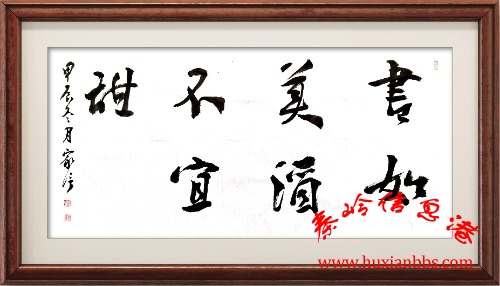 書如
美酒
不宜
甜
甲辰冬月家
秦岭信息港
www.huxianbbs.com